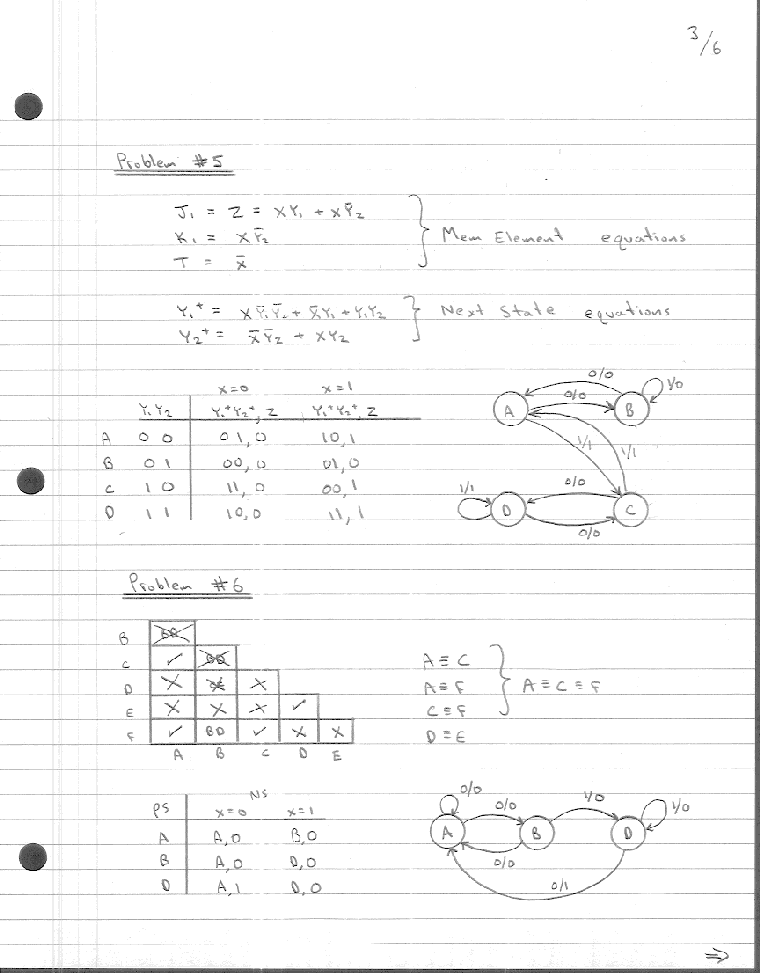 3/6
Problem #5
J₁ = Z = XY₁ + XȲ₂
K₁ = XȲ₂
T = X̄
} Mem Element equations
Y₁⁺ = XȲ₁Ȳ₂ + X̄Y₁ + Y₁Y₂
Y₂⁺ = X̄Ȳ₂ + XY₂
} Next State equations
x=0 x=1
Y₁Y₂ Y₁⁺Y₂⁺, Z Y₁⁺Y₂⁺, Z
A 0 0 01, 0 10, 1
B 0 1 00, 0 01, 0
C 1 0 11, 0 00, 1
D 1 1 10, 0 11, 1
0/0
0/0 1/0
A B
1/1 1/1
1/1 0/0
D C
0/0
Problem #6
B
C ✓
D X X
E X X X ✓
F ✓ BD ✓ X X
A B C D E
A ≡ C
A ≡ F
C ≡ F
D ≡ E
} A ≡ C ≡ F
NS
PS x=0 x=1
A A, 0 B, 0
B A, 0 D, 0
D A, 1 D, 0
0/0 0/0 1/0 1/0
A B D
0/0
0/1
⇒